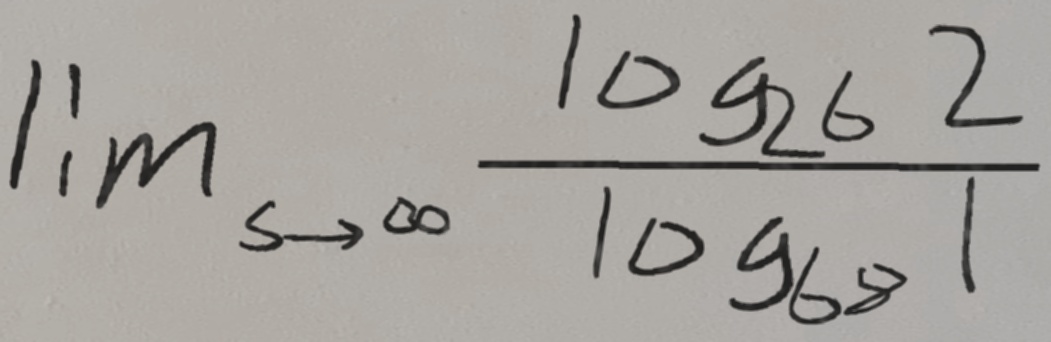 lim s→∞ log₂₆ 2
log₆₈ 1